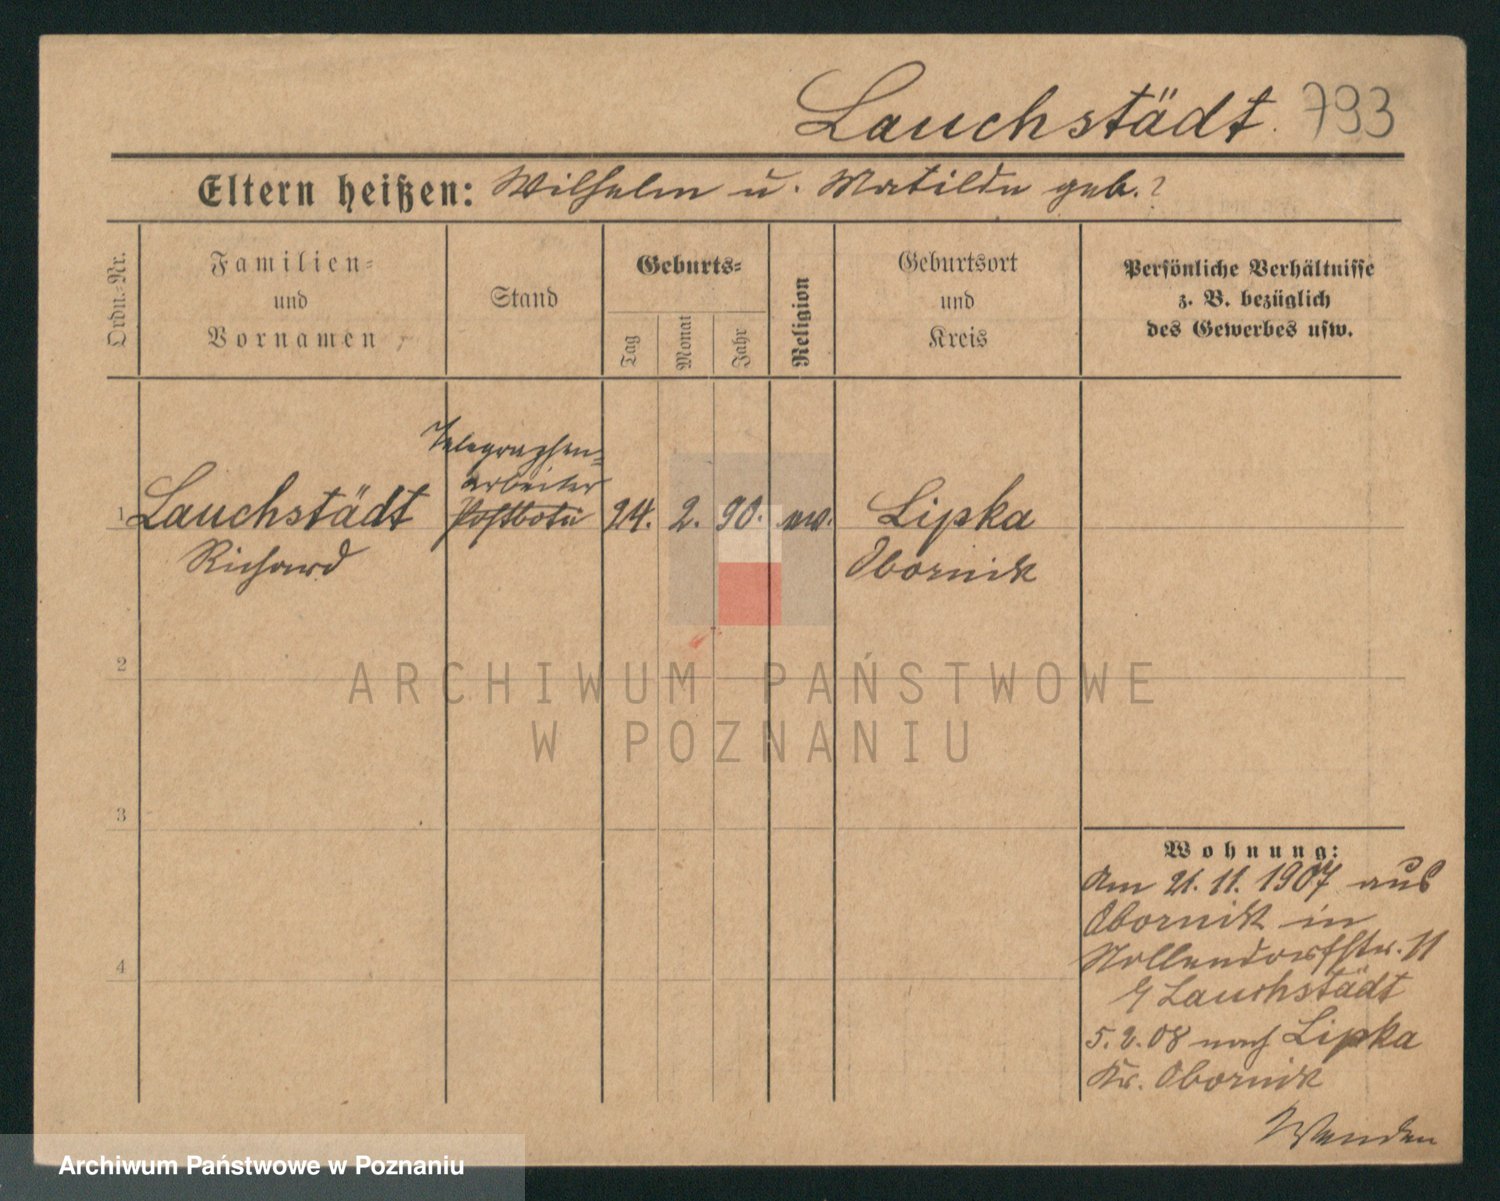 Lauchstädt. 793
Eltern heißen: Wilhelm u. Matilde geb. ?
Ordn.-Nr.
Familien-
und
Vornamen
Stand
Geburts-
Tag
Monat
Jahr
Religion
Geburtsort
und
Kreis
Persönliche Verhältnisse
z. B. bezüglich
des Gewerbes usw.
Telegraphen-
arbeiter
1 Lauchstädt Postbote 24. 2. 90. ew. Lipka
Richard Obornik
2
ARCHIWUM PAŃSTWOWE
W POZNANIU
3
Wohnung:
Am 21. 11. 1907 aus
Obornik in
Nollendorfstr. 11
4
Lauchstädt
5. 2. 08 nach Lipka
Kr. Obornik
Wenden
Archiwum Państwowe w Poznaniu